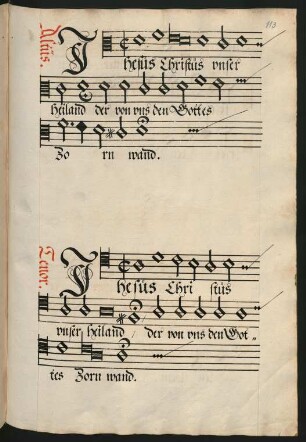 113
Altus.
Jhesus Christus vnser
Heiland der von vns den Gottes
Zo rn wand.
Tenor.
Jhesus Chri stus
vnser Heiland / der von vns den Got =
tes Zorn wand.